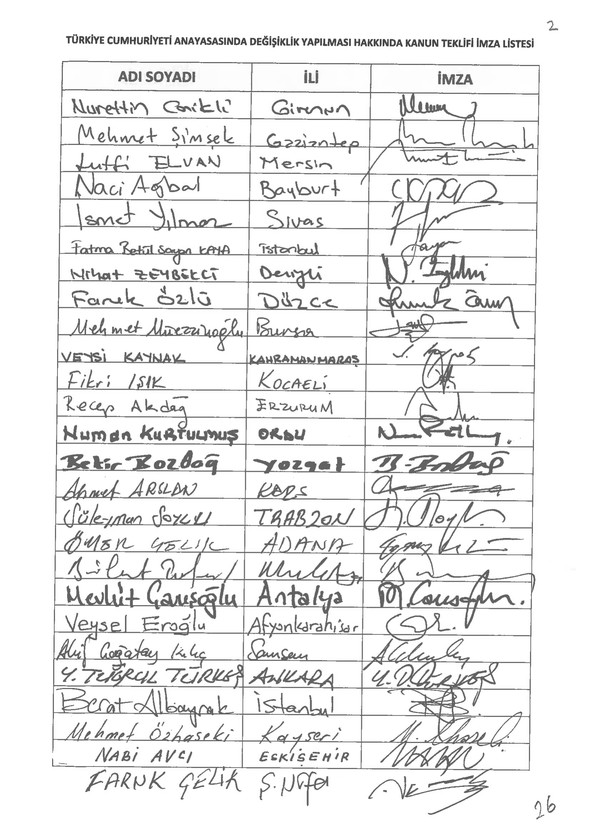 2
TÜRKİYE CUMHURİYETİ ANAYASASINDA DEĞİŞİKLİK YAPILMASI HAKKINDA KANUN TEKLİFİ İMZA LİSTESİ
ADI SOYADI İLİ İMZA
Nurettin Canikli Giresun
Mehmet Şimşek Gaziantep
Lutfi ELVAN Mersin
Naci Ağbal Bayburt
İsmet Yılmaz Sivas
Fatma Betül Sayan KAYA istanbul
Nihat ZEYBEKCİ Denizli
Faruk Özlü Düzce
Mehmet Müezzinoğlu Bursa
VEYSİ KAYNAK KAHRAMANMARAŞ
Fikri IŞIK KOCAELİ
Recep Akdağ ERZURUM
Numan KURTULMUŞ ORDU
Bekir Bozdağ Yozgat B. Bozdağ
Ahmet ARSLAN KARS
Süleyman Soylu TRABZON
ÖMER ÇELİK ADANA
Mevlüt Çavuşoğlu Antalya
Veysel Eroğlu Afyonkarahisar
Akif Çağatay Kılıç Samsun
Y. TUĞRUL TÜRKEŞ ANKARA
Berat Albayrak İstanbul
Mehmet Özhaseki Kayseri
NABİ AVCI ESKİŞEHİR
FARUK ÇELİK Ş.Urfa
26